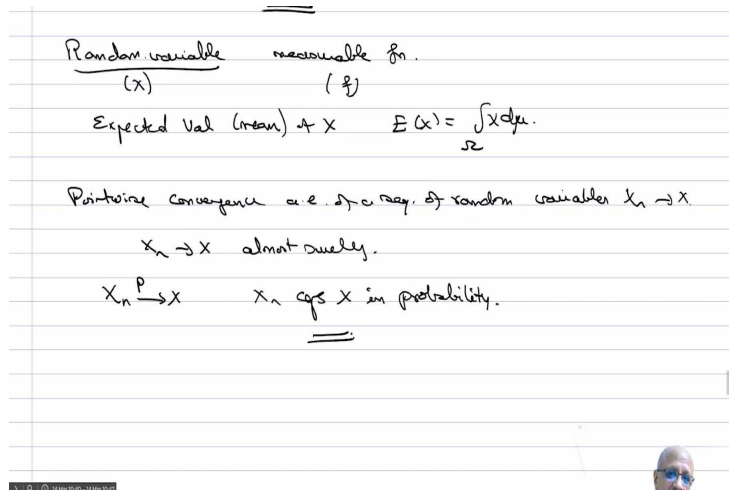 Random variable measurable fn.
(X) (f)
Expected Val (mean) of X E(X) = ∫_Ω X dμ.
Pointwise convergence a.e. of a seq. of random variables Xn → X.
Xn → X almost surely.
Xn P→ X Xn cgs X in probability.